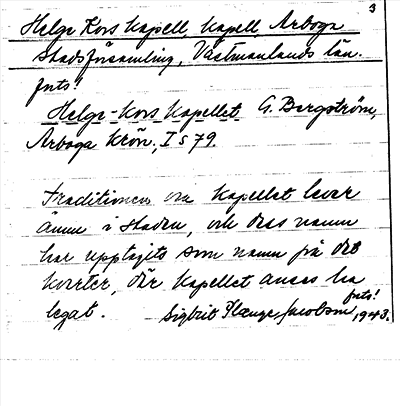 3
Helge Kors kapell, kapell, Arboga
stadsförsamling, Västmanlands län.
forts!
Helge-Kors Kapellet G. Bergström,
Arboga krön, I s 79.
Traditionen om kapellet lever
ännu i staden, och dess namn
har upptagits som namn på det
kvarter, där kapellet anses ha
legat.
forts!
Sigbrit Plænge Jacobson, 1943.